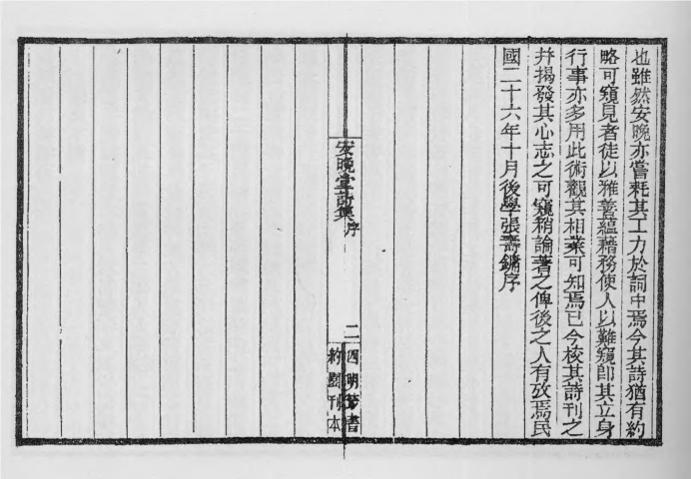 也雖然安晚亦嘗耗其工力於詞中焉今其詩猶有約
略可窺見者徒以雅善蘊藉務使人以難窺卽其立身
行事亦多用此術觀其相業可知焉已今校其詩刊之
幷揭發其心志之可窺稍論著之俾後之人有攷焉民
國二十六年十月後學張壽鏞序
安晚堂詩集 序
二
四明叢書
約園刊本